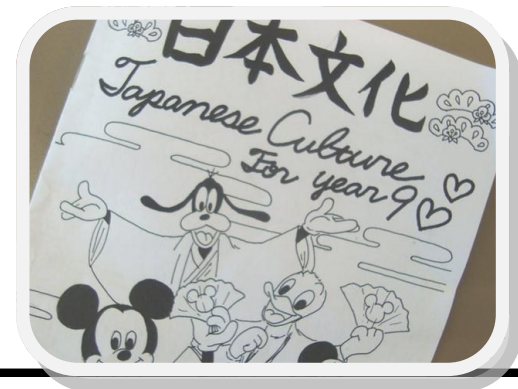 日本文化
Japanese Culture
For year 9